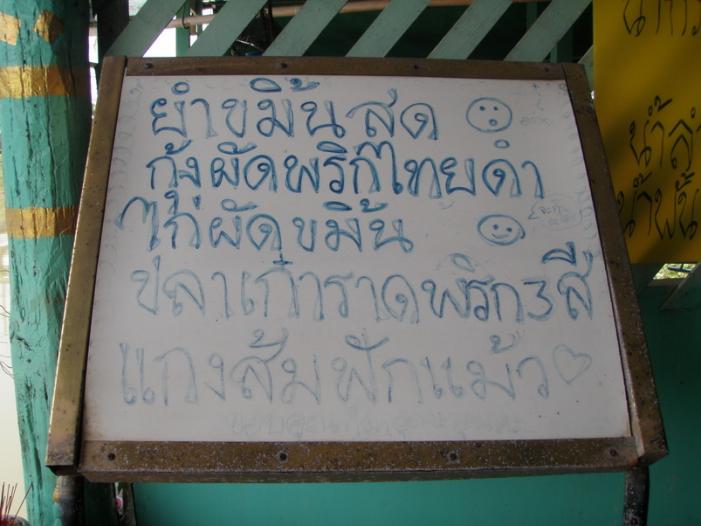 ยำขมิ้นสด
กุ้งผัดพริกไทยดำ
ไก่ผัดขมิ้น
ปลาเก๋าราดพริก3สี
แกงส้มฟักแม้ว